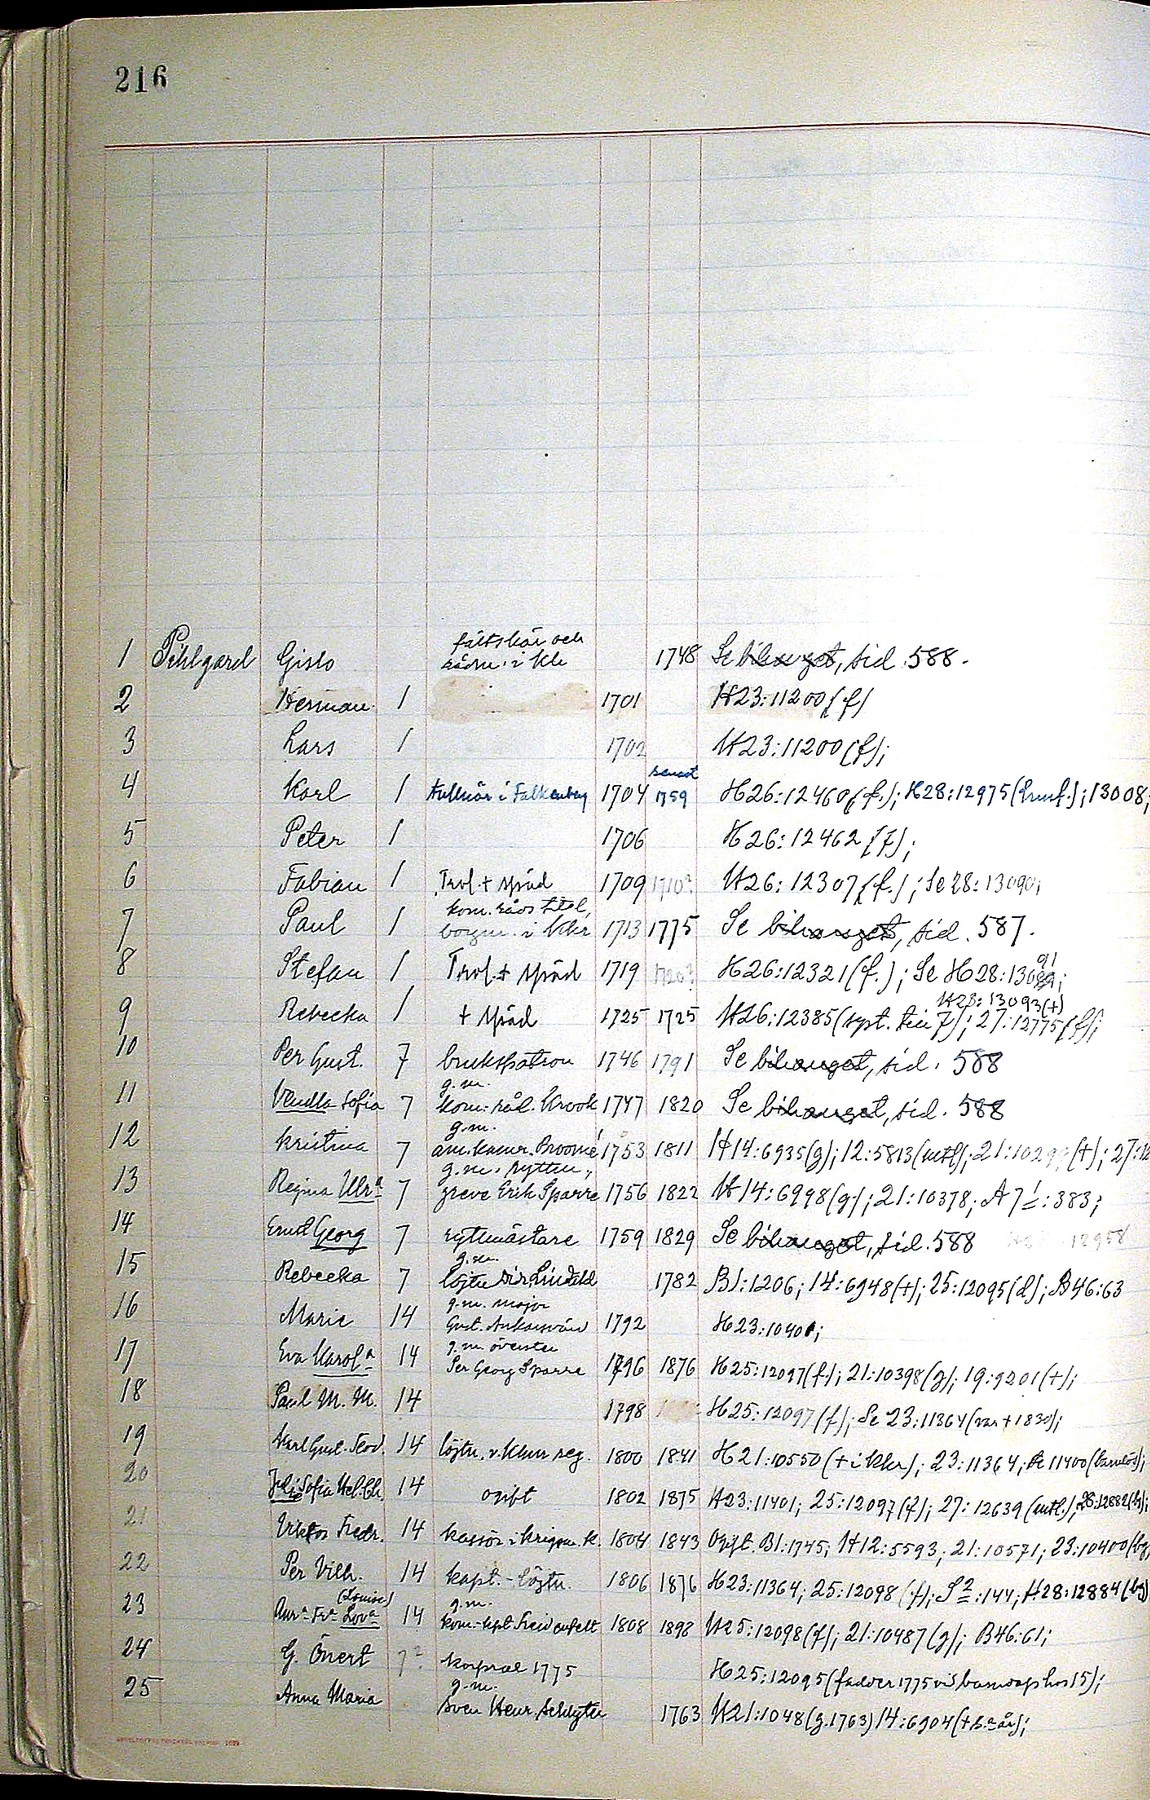 216
1 Pihlgard Gislo fältskär och rådm. i Kh 1748 Se bihanget, sid. 588.
2 Herman 1 1701 H23:11200 (f)
3 Lars 1 1702 H23:11200 (f);
4 Karl 1 tullnär i Falkenberg 1704 senast 1759 H26:12460 (f.); H28:12975 ( ); 13008;
5 Peter 1 1706 H26:12462 (f);
6 Fabian 1 Trol. + späd 1709 1710? H26:12307 (f.); Se 28:13090;
7 Paul 1 kom. råds titel, borgm. i Khr 1713 1775 Se bihanget, sid. 587.
8 Stefan 1 Trol. + späd 1719 1720? H26:12321 (f.); Se H28:13091;
9 Rebecka 1 + späd 1725 1725 H26:12385 (sept. 7); 27:12775 (f); H28:13093 (+)
10 Per Gust. 7 brukspatron 1746 1791 Se bihanget, sid. 588
11 Vendla Sofia 7 g.m. kom.-råd. Krook 1747 1820 Se bihanget, sid. 588
12 Kristina 7 g.m. kamr. Broomé 1753 1811 H14:6935 (g); 12:5813 ( ); 21: (+); 27:
13 Regina Ulr.a 7 g.m. ryttm., greve Erik Sparre 1756 1822 H14:6998 (g); 21:10378; A7 1:383;
14 Ernst Georg 7 ryttmästare 1759 1829 Se bihanget, sid. 588 12958
15 Rebecka 7 g.m. löjtn. Lindahl 1782 B1:1206; 14:6948 (+); 25:12095 (d); B46:63
16 Marie 14 g.m. major Gust. Ankarsvärd 1792 H23:10401;
17 Eva Karol.a 14 g.m. överste Per Georg Sparre 1796 1876 H25:12097 (f); 21:10398 (g); 19:9201 (+);
18 Paul M. M. 14 1798 H25:12097 (f); Se 23:11364 (var + 1830);
19 Karl Gust. Teod. 14 löjtn. v. reg. 1800 1841 H21:10550 (+ i Khr); 23:11364, Se 11400 (barnlös);
20 Sofia Hel. Ch. 14 ogift 1802 1875 H23:11401; 25:12097 (f); 27:12639 ( ); 28:12882 (bg);
21 Viktor Fredr. 14 kassör i krigsm. k. 1804 1843 Ogift. B1:1745; H12:5593; 21:10571; 23:10400 (bg)
22 Per Vilh. 14 kapt.-löjtn. 1806 1876 H23:11364; 25:12098 (f); S2:144; H28:12884 (bg)
23 Aur.a Fr.a Lov.a (Lovisa) 14 g.m. kom.-kpt. 1808 1893 H25:12098 (f); 21:10487 (g); B46:61;
24 G. Önert 7? korpral 1775 H25:12095 (fadder 1775 vid barndop hos 15);
25 Anna Maria g.m. Sven Henr. Schlyter 1763 H21:1048 (g. 1763) 14:6904 (+ s. år);